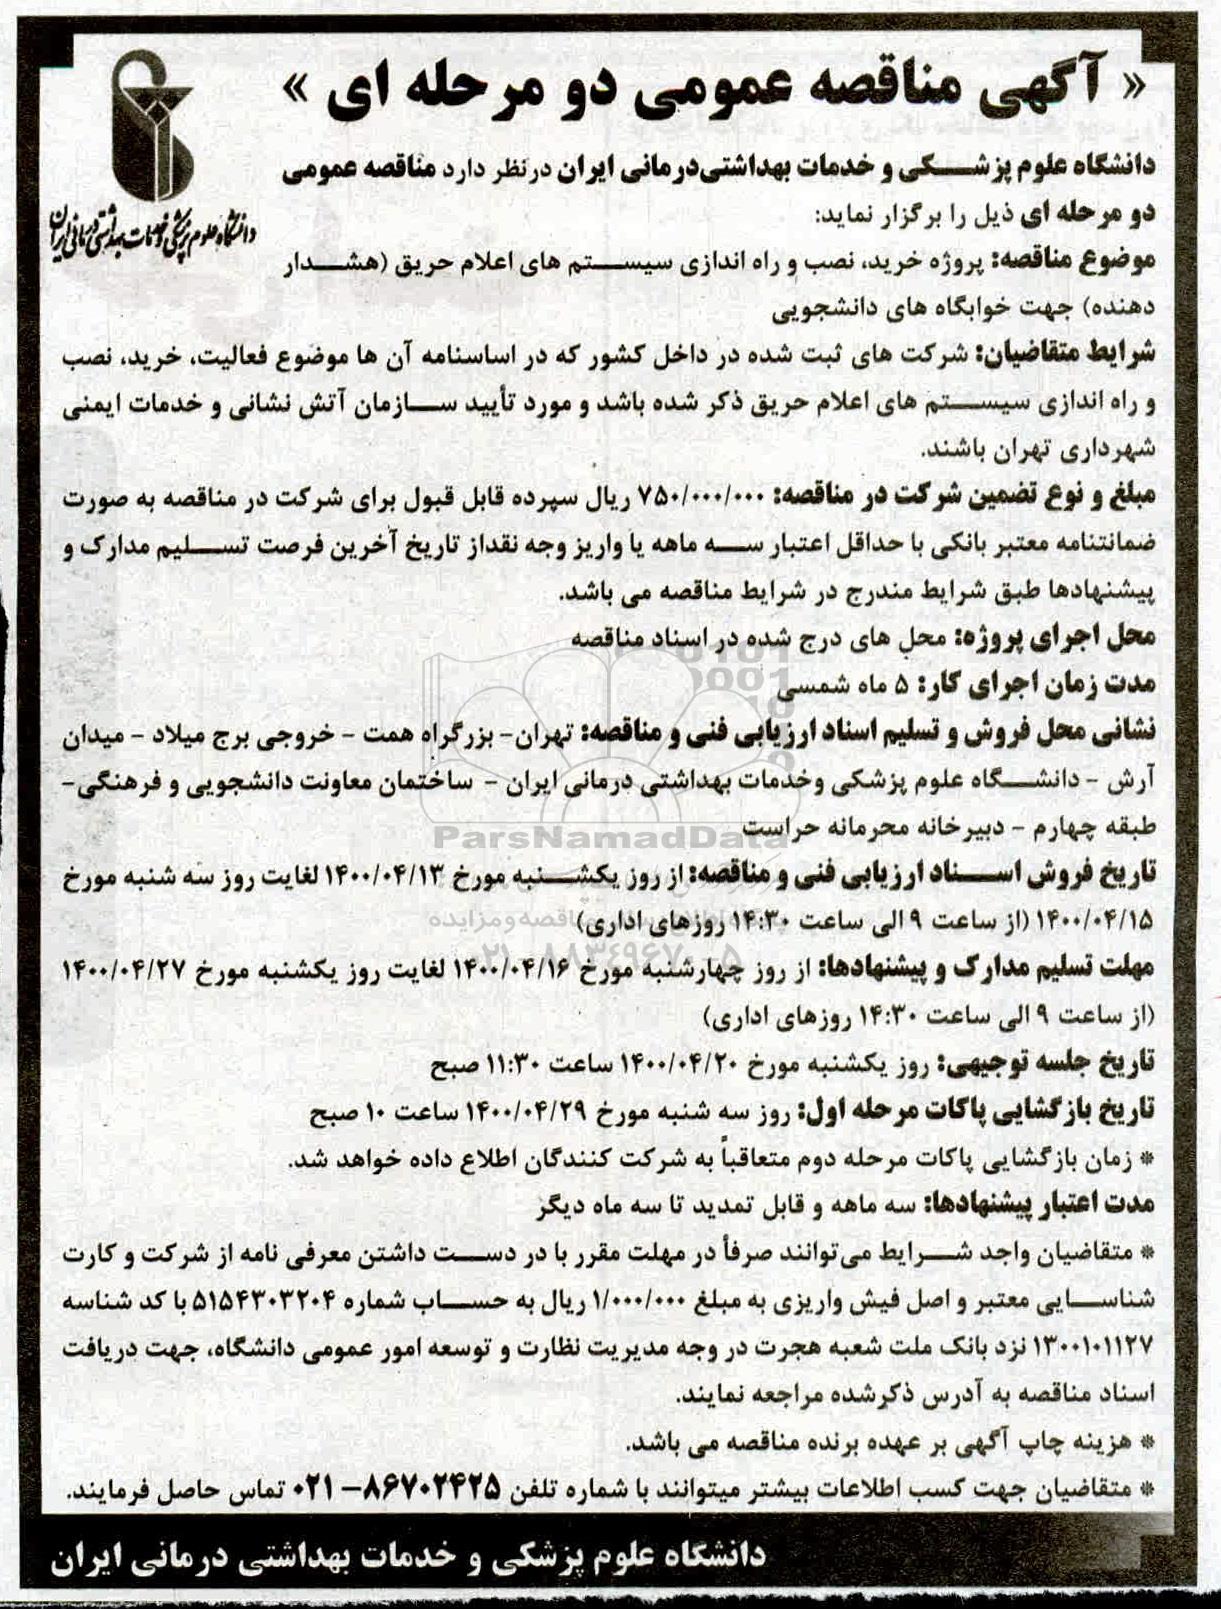 « آگهی مناقصه عمومی دو مرحله ای »
دانشگاه علوم پزشکی و خدمات بهداشتی درمانی ایران
دانشگاه علوم پزشکی و خدمات بهداشتی‌درمانی ایران درنظر دارد مناقصه عمومی
دو مرحله ای ذیل را برگزار نماید:
موضوع مناقصه: پروژه خرید، نصب و راه اندازی سیستم های اعلام حریق (هشدار
دهنده) جهت خوابگاه های دانشجویی
شرایط متقاضیان: شرکت های ثبت شده در داخل کشور که در اساسنامه آن ها موضوع فعالیت، خرید، نصب
و راه اندازی سیستم های اعلام حریق ذکر شده باشد و مورد تأیید سازمان آتش نشانی و خدمات ایمنی
شهرداری تهران باشند.
مبلغ و نوع تضمین شرکت در مناقصه: ۷۵۰/۰۰۰/۰۰۰ ریال سپرده قابل قبول برای شرکت در مناقصه به صورت
ضمانتنامه معتبر بانکی با حداقل اعتبار سه ماهه یا واریز وجه نقداز تاریخ آخرین فرصت تسلیم مدارک و
پیشنهادها طبق شرایط مندرج در شرایط مناقصه می باشد.
محل اجرای پروژه: محل های درج شده در اسناد مناقصه
مدت زمان اجرای کار: ۵ ماه شمسی
نشانی محل فروش و تسلیم اسناد ارزیابی فنی و مناقصه: تهران- بزرگراه همت - خروجی برج میلاد - میدان
آرش - دانشگاه علوم پزشکی وخدمات بهداشتی درمانی ایران - ساختمان معاونت دانشجویی و فرهنگی-
طبقه چهارم - دبیرخانه محرمانه حراست
ParsNamadData
تاریخ فروش اسناد ارزیابی فنی و مناقصه: از روز یکشنبه مورخ ۱۴۰۰/۰۴/۱۳ لغایت روز سه شنبه مورخ
۱۴۰۰/۰۴/۱۵ (از ساعت ۹ الی ساعت ۱۴:۳۰ روزهای اداری)
مهلت تسلیم مدارک و پیشنهادها: از روز چهارشنبه مورخ ۱۴۰۰/۰۴/۱۶ لغایت روز یکشنبه مورخ ۱۴۰۰/۰۴/۲۷
(از ساعت ۹ الی ساعت ۱۴:۳۰ روزهای اداری)
تاریخ جلسه توجیهی: روز یکشنبه مورخ ۱۴۰۰/۰۴/۲۰ ساعت ۱۱:۳۰ صبح
تاریخ بازگشایی پاکات مرحله اول: روز سه شنبه مورخ ۱۴۰۰/۰۴/۲۹ ساعت ۱۰ صبح
* زمان بازگشایی پاکات مرحله دوم متعاقباً به شرکت کنندگان اطلاع داده خواهد شد.
مدت اعتبار پیشنهادها: سه ماهه و قابل تمدید تا سه ماه دیگر
* متقاضیان واجد شرایط می‌توانند صرفاً در مهلت مقرر با در دست داشتن معرفی نامه از شرکت و کارت
شناسایی معتبر و اصل فیش واریزی به مبلغ ۱/۰۰۰/۰۰۰ ریال به حساب شماره ۵۱۵۴۳۰۳۲۰۴ با کد شناسه
۱۳۰۰۱۰۱۱۲۷ نزد بانک ملت شعبه هجرت در وجه مدیریت نظارت و توسعه امور عمومی دانشگاه، جهت دریافت
اسناد مناقصه به آدرس ذکرشده مراجعه نمایند.
* هزینه چاپ آگهی بر عهده برنده مناقصه می باشد.
* متقاضیان جهت کسب اطلاعات بیشتر میتوانند با شماره تلفن ۸۶۷۰۲۴۲۵–۰۲۱ تماس حاصل فرمایند.
دانشگاه علوم پزشکی و خدمات بهداشتی درمانی ایران